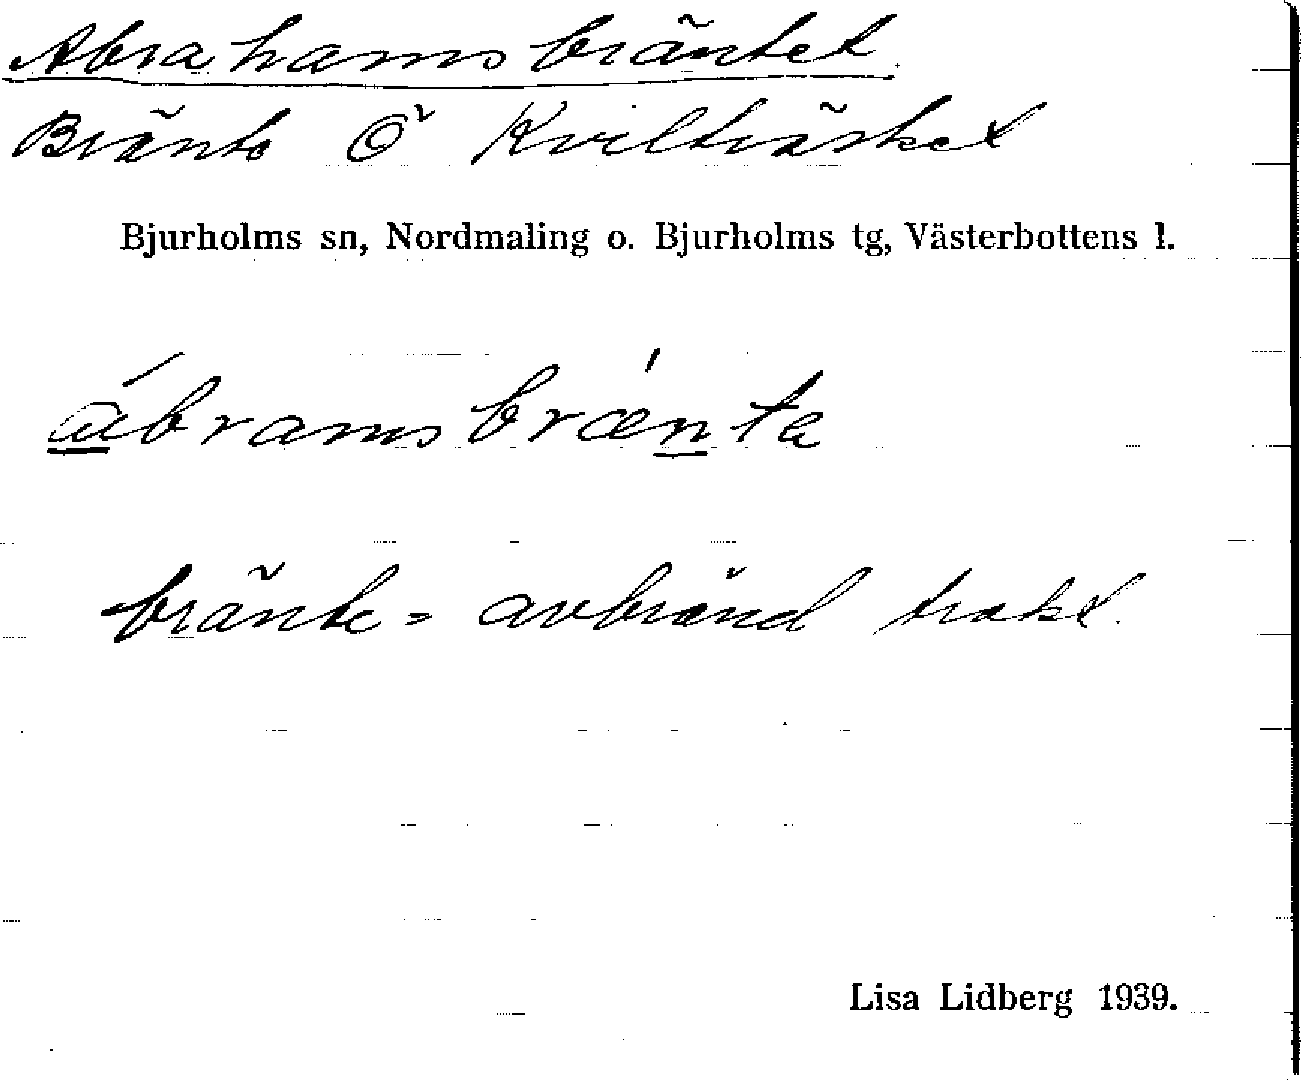 Abrahamsbräntet
Bränte Ö Kvilträsket
Bjurholms sn, Nordmaling o. Bjurholms tg, Västerbottens l.
ábramsbræ'nta
bränte = avbränd trakt.
Lisa Lidberg 1939.